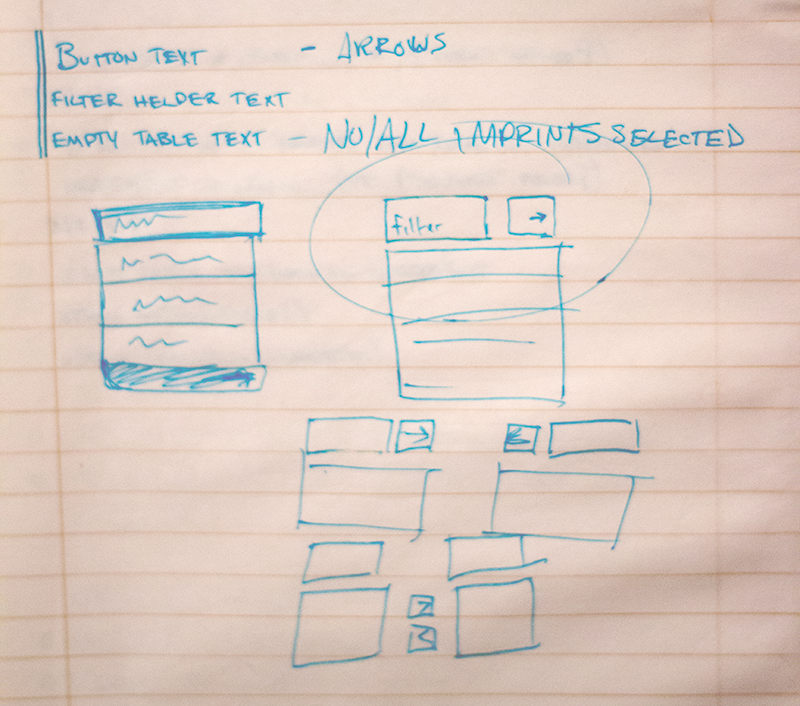 BUTTON TEXT - ARROWS
FILTER HELDER TEXT
EMPTY TABLE TEXT - NO/ALL IMPRINTS SELECTED
filter